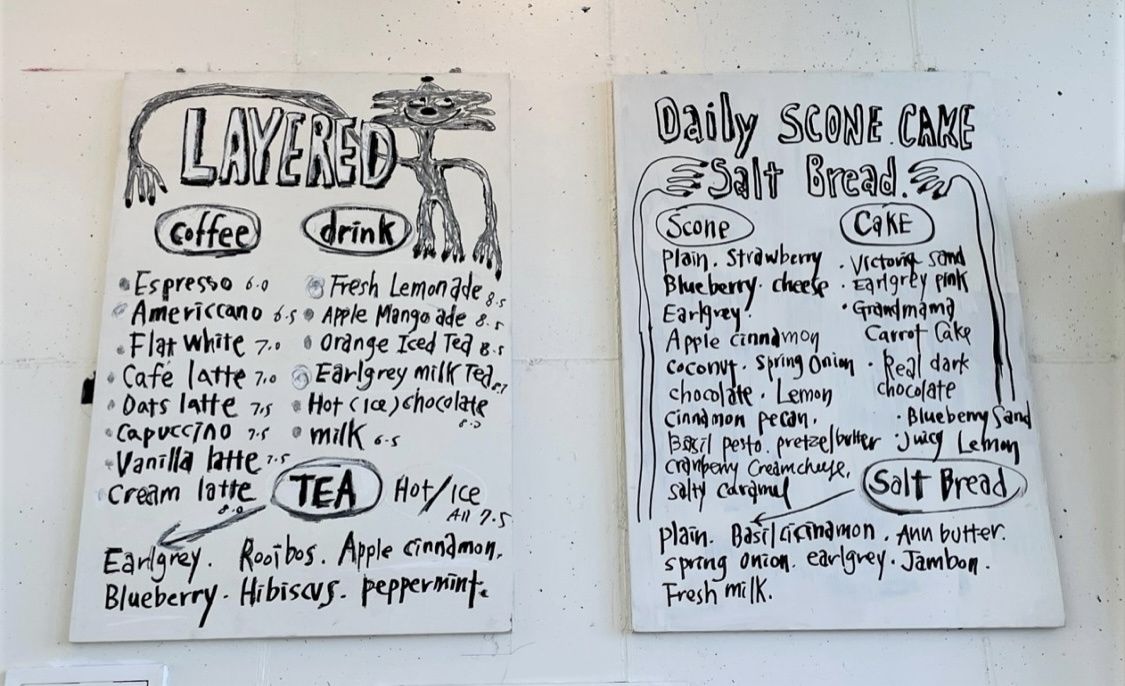 LAYERED
coffee
Espresso 6.0
Americcano 6.5
Flat white 7.0
Café latte 7.0
Oats latte 7.5
capuccino 7.5
Vanilla latte 7.5
cream latte 8.0
drink
Fresh Lemonade 8.5
Apple Mango ade 8.5
Orange Iced Tea 8.5
Earlgrey milk Tea
Hot (Ice) chocolate
milk 6.5
TEA Hot/Ice
All 7.5
Earlgrey. Rooibos. Apple cinnamon.
Blueberry. Hibiscus. peppermint.
Daily SCONE. CAKE
Salt Bread.
Scone
Plain. Strawberry
Blueberry. cheese
Earlgrey.
Apple cinnamon
coconut. Spring Onion
chocolate. Lemon
cinnamon pecan.
Basil pesto. pretzel butter
cranberry Creamcheese.
salty caramel
CAKE
· Victoria sand
· Earlgrey pink
· Grandmama
Carrot Cake
· Real dark
chocolate
· Blueberry Sand
· Juicy Lemon
Salt Bread
plain. Basil cinnamon. Ann butter.
spring onion. earlgrey. Jambon.
Fresh milk.